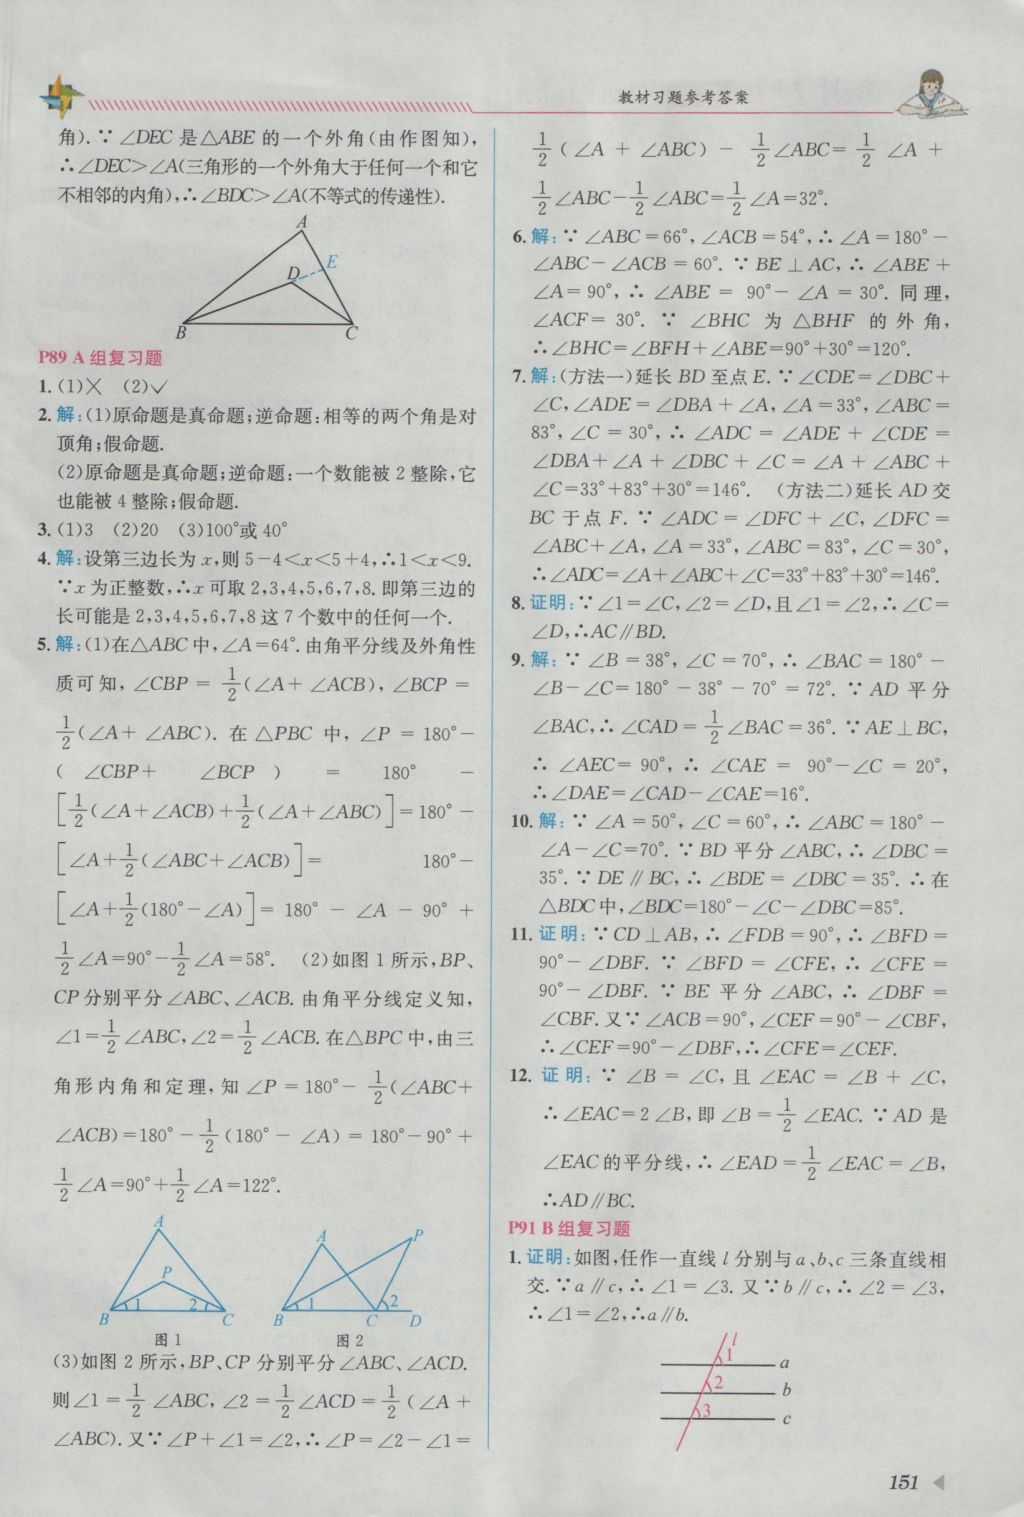 教材习题参考答案
角).∵∠DEC 是△ABE 的一个外角(由作图知),
∴∠DEC>∠A(三角形的一个外角大于任何一个和它
不相邻的内角),∴∠BDC>∠A(不等式的传递性).
A
D
E
B
C
P89 A 组复习题
1. (1)╳ (2)✓
2. 解:(1)原命题是真命题;逆命题:相等的两个角是对
顶角;假命题.
(2)原命题是真命题;逆命题:一个数能被 2 整除,它
也能被 4 整除;假命题.
3. (1)3 (2)20 (3)100°或 40°
4. 解:设第三边长为 x,则 5-4<x<5+4,∴1<x<9.
∵x 为正整数,∴x 可取 2,3,4,5,6,7,8. 即第三边的
长可能是 2,3,4,5,6,7,8 这 7 个数中的任何一个.
5. 解:(1)在△ABC 中,∠A=64°.由角平分线及外角性
质可知,∠CBP = 1/2(∠A+ ∠ACB), ∠BCP =
1/2(∠A+ ∠ABC). 在 △PBC 中, ∠P = 180°-
( ∠CBP+ ∠BCP ) = 180° -
[1/2(∠A+∠ACB)+1/2(∠A+∠ABC)]=180°-
[∠A+1/2(∠ABC+∠ACB)]= 180°-
[∠A+1/2(180°-∠A)]= 180° - ∠A - 90° +
1/2∠A=90°-1/2∠A=58°. (2)如图 1 所示,BP、
CP 分别平分∠ABC、∠ACB. 由角平分线定义知,
∠1=1/2∠ABC,∠2=1/2∠ACB. 在△BPC 中,由三
角形内角和定理,知 ∠P = 180°- 1/2(∠ABC+
∠ACB)=180°-1/2(180°- ∠A) = 180°-90°+
1/2∠A=90°+1/2∠A=122°.
A
P
B
1
2
C
图 1
A
P
B
1
2
C
D
图 2
(3)如图 2 所示,BP、CP 分别平分∠ABC、∠ACD.
则∠1 = 1/2∠ABC, ∠2 = 1/2∠ACD = 1/2(∠A +
∠ABC). 又∵∠P+∠1=∠2,∴∠P=∠2-∠1=
1/2(∠A + ∠ABC) - 1/2∠ABC= 1/2∠A +
1/2∠ABC-1/2∠ABC=1/2∠A=32°.
6. 解:∵ ∠ABC=66°, ∠ACB=54°,∴ ∠A=180°-
∠ABC- ∠ACB = 60°. ∵ BE⊥AC,∴ ∠ABE+
∠A= 90°,∴ ∠ABE = 90°- ∠A = 30°. 同理,
∠ACF= 30°. ∵ ∠BHC 为 △BHF 的外角,
∴∠BHC=∠BFH+∠ABE=90°+30°=120°.
7. 解:(方法一)延长 BD 至点 E.∵∠CDE=∠DBC+
∠C,∠ADE=∠DBA+∠A,∠A=33°,∠ABC=
83°,∠C = 30°,∴ ∠ADC = ∠ADE + ∠CDE =
∠DBA+∠A+∠DBC+∠C=∠A+∠ABC+
∠C=33°+83°+30°=146°. (方法二)延长 AD 交
BC 于点 F.∵∠ADC=∠DFC+∠C,∠DFC=
∠ABC+∠A,∠A=33°,∠ABC=83°,∠C=30°,
∴∠ADC=∠A+∠ABC+∠C=33°+83°+30°=146°.
8. 证明:∵∠1=∠C,∠2=∠D,且∠1=∠2,∴∠C=
∠D,∴AC∥BD.
9. 解:∵ ∠B=38°, ∠C=70°,∴ ∠BAC=180°-
∠B-∠C=180°-38°-70°=72°. ∵ AD 平分
∠BAC,∴∠CAD=1/2∠BAC=36°.∵AE⊥BC,
∴ ∠AEC= 90°,∴ ∠CAE = 90°-∠C = 20°,
∴∠DAE=∠CAD-∠CAE=16°.
10. 解:∵ ∠A=50°,∠C=60°,∴ ∠ABC=180°-
∠A-∠C=70°.∵BD 平分∠ABC,∴∠DBC=
35°.∵DE∥BC,∴∠BDE=∠DBC=35°.∴在
△BDC 中,∠BDC=180°-∠C-∠DBC=85°.
11. 证明:∵CD⊥AB,∴∠FDB=90°,∴∠BFD=
90°-∠DBF.∵∠BFD=∠CFE,∴∠CFE=
90°-∠DBF.∵BE 平分∠ABC,∴∠DBF=
∠CBF.又∵∠ACB=90°,∠CEF=90°-∠CBF,
∴∠CEF=90°-∠DBF,∴∠CFE=∠CEF.
12. 证明:∵ ∠B = ∠C,且 ∠EAC = ∠B + ∠C,
∴∠EAC=2∠B,即∠B=1/2∠EAC.∵AD 是
∠EAC 的平分线,∴∠EAD=1/2∠EAC=∠B,
∴AD∥BC.
P91 B 组复习题
1. 证明:如图,任作一直线 l 分别与 a、b、c 三条直线相
交.∵a∥c,∴∠1=∠3. 又∵b∥c,∴∠2=∠3,
∴∠1=∠2,∴a∥b.
l
1
a
2
b
3
c
151